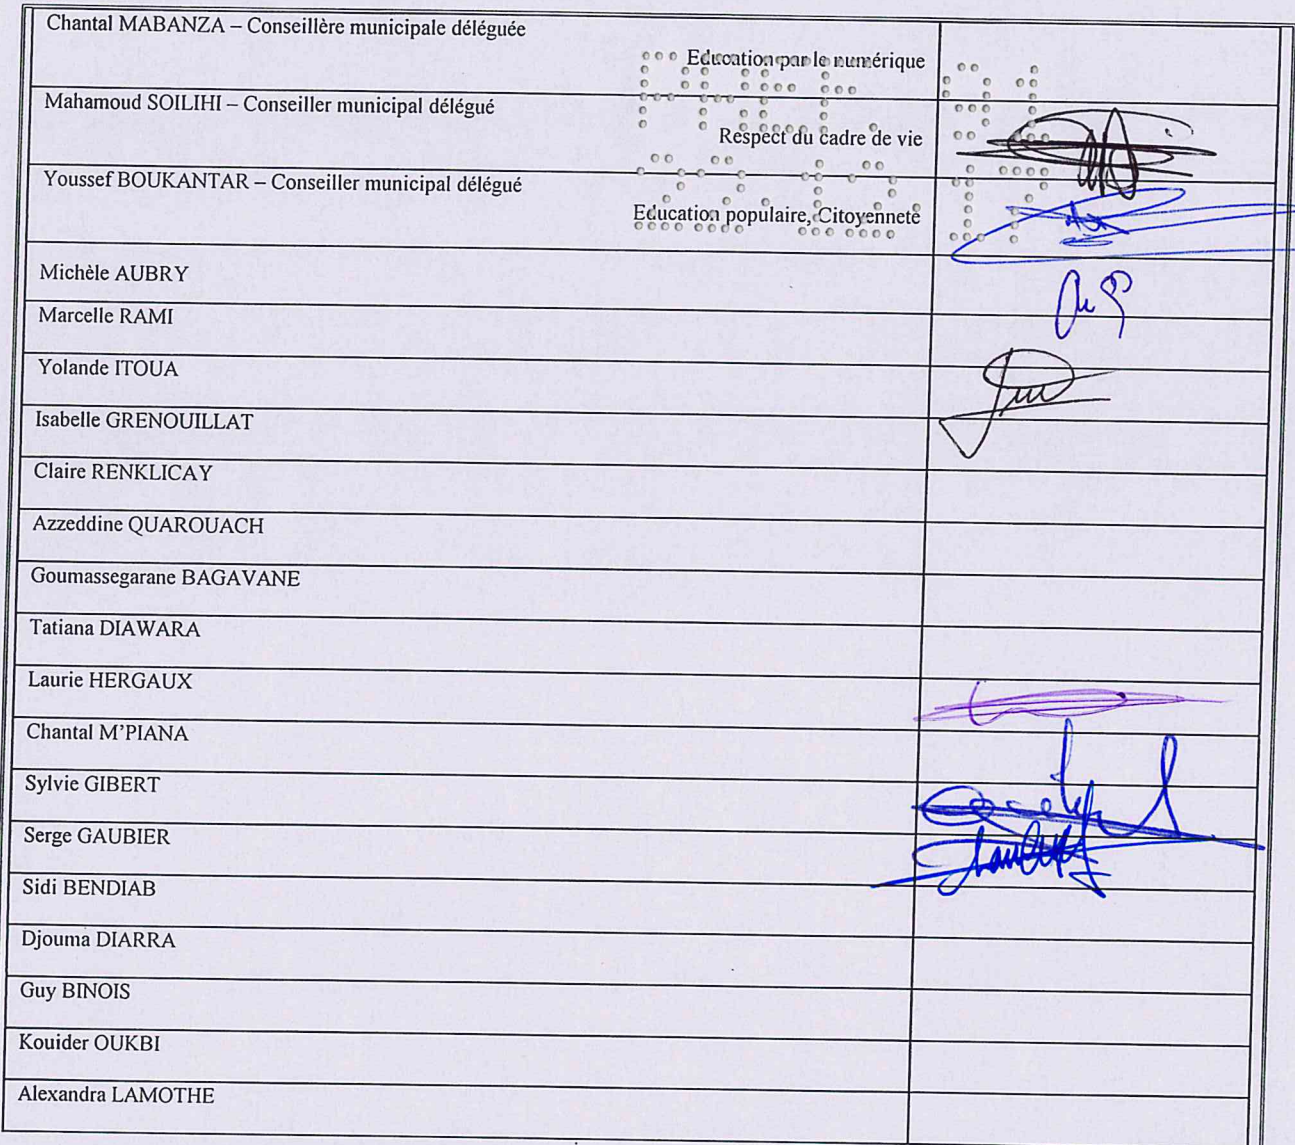 Chantal MABANZA – Conseillère municipale déléguée
Education par le numérique
Mahamoud SOILIHI – Conseiller municipal délégué
Respect du cadre de vie
Youssef BOUKANTAR – Conseiller municipal délégué
Education populaire, Citoyenneté
Michèle AUBRY
Marcelle RAMI
Yolande ITOUA
Isabelle GRENOUILLAT
Claire RENKLICAY
Azzeddine QUAROUACH
Goumassegarane BAGAVANE
Tatiana DIAWARA
Laurie HERGAUX
Chantal M'PIANA
Sylvie GIBERT
Serge GAUBIER
Sidi BENDIAB
Djouma DIARRA
Guy BINOIS
Kouider OUKBI
Alexandra LAMOTHE